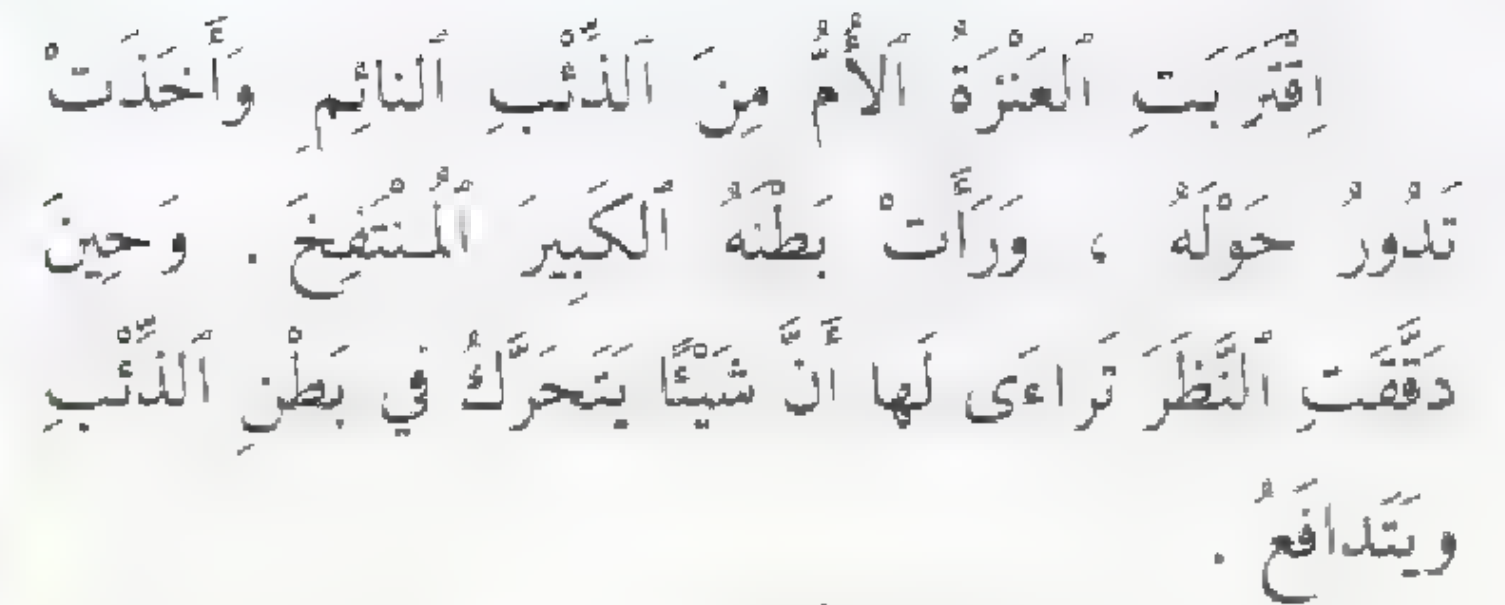 اِقْتَرَبَتِ ٱلعَنْزَةُ ٱلأُمُّ مِنَ ٱلذِّئْبِ ٱلنائِمِ وَأَخَذَتْ
تَدُورُ حَوْلَهُ ، وَرَأَتْ بَطْنَهُ ٱلكَبِيرَ ٱلمُنْتَفِخَ . وَحِينَ
دَقَّقَتِ ٱلنَّظَرَ تَراءَى لَها أَنَّ شَيْئًا يَتَحَرَّكُ في بَطْنِ ٱلذِّئْبِ
ويَتَدافَعُ .